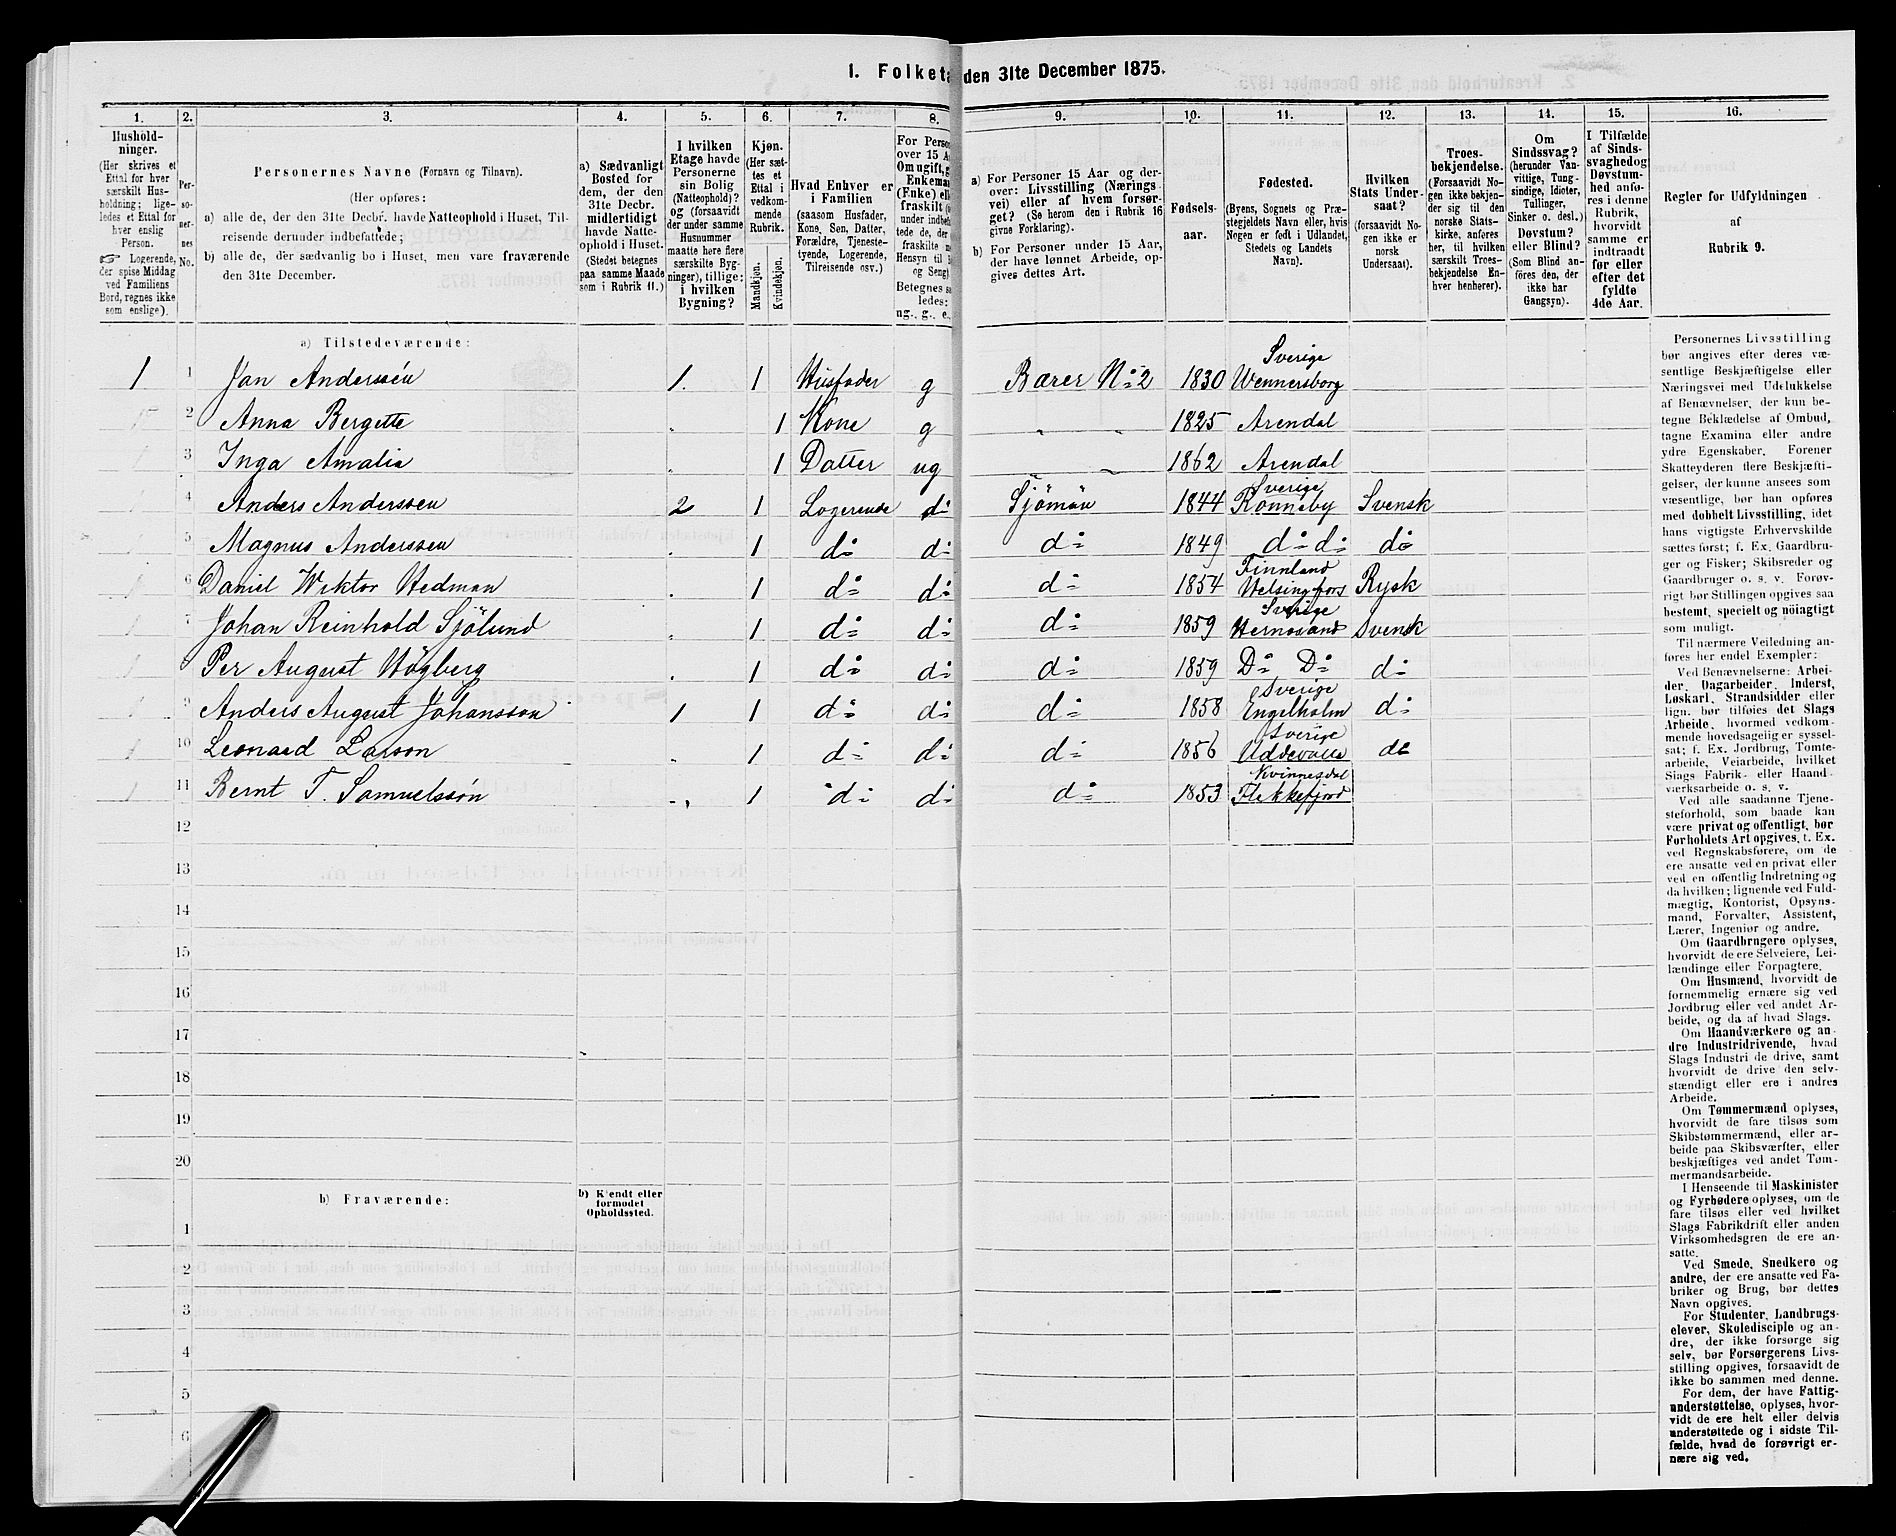 1. Folketæ den 31te December 1875.
1. 2. 3. 4. 5. 6. 7. 8. 9. 10. 11. 12. 13. 14. 15. 16.
Hushold-
ninger.
(Her skrives et
Ettal for hver
særskilt Hus-
holdning; lige-
ledes et Ettal for
hver enslig
Person.
☞ Logerende,
der spise Middag
ved Familiens
Bord, regnes ikke
som enslige).
Per-
so-
ner-
nes
No.
Personernes Navne (Fornavn og Tilnavn).
(Her opføres:
a) alle de, der den 31te Decbr. havde Natteophold i Huset, Til-
reisende derunder indbefattede;
b) alle de, der sædvanlig bo i Huset, men vare fraværende
den 31te December.
a) Sædvanligt
Bosted for
dem, der den
31te Decbr.
midlertidigt
havde Natte-
ophold i Huset.
(Stedet betegnes
paa samme Maade
som i Rubrik 11.)
I hvilken
Etage havde
Personerne
sin Bolig
(Natteophold)?
og (forsaavidt
der under samme
Husnummer
maatte høre flere
særskilte Byg-
ninger), tillige:
i hvilken
Bygning?
Kjøn.
(Her sæt-
tes et
Ettal i
vedkom-
mende
Rubrik.
Mandkjøn.
Kvindekjøn.
Hvad Enhver er
i Familien
(saasom Husfader,
Kone, Søn, Datter,
Forældre, Tjeneste-
tyende, Logerende,
Tilreisende osv.)
For Perso
over 15 A
Om ugift, g
Enkema
(Enke) el
fraskilt (
under indbe
tede de, der
fraskilte
Hensyn til
og Seng)
Betegnes sa
ledes:
ug., g., e.,
a) For Personer 15 Aar og der-
over: Livsstilling (Nærings
vei) eller af hvem forsør-
get? (Se herom den i Rubrik 16
givne Forklaring).
b) For Personer under 15 Aar,
der have lønnet Arbeide, op-
gives dettes Art.
Fødsels-
aar.
Fødested.
(Byens, Sognets og Præ-
stegjeldets Navn eller, hvis
Nogen er født i Udlandet,
Stedets og Landets
Navn).
Hvilken
Stats Under-
saat?
(forsaavidt No-
gen ikke er
norsk
Undersaat).
Troes-
bekjendelse.
(Forsaavidt No-
gen ikke bekjen-
der sig til den
norske Stats-
kirke, anføres
her, til hvilken
særskilt Troes-
bekjendelse En-
hver henhører).
Om
Sindssvag?
(herunder Van-
vittige, Tung-
sindige, Idioter,
Tullinger,
Sinker o. desl.)
Døvstum?
eller Blind?
(Som Blind an-
føres den, der
ikke har
Gangsyn).
I Tilfælde
af Sinds-
svaghedog
Døvstum-
hed anfø-
res i denne
Rubrik,
hvorvidt
samme er
indtraadt
før eller
efter det
fyldte
4de Aar.
Regler for Udfyldningen
af
Rubrik 9.
a) Tilstedeværende:
1 1 Jan Anderssén 1. 1 Husfader g Bærer No 2 1830 Sverige Wennersborg
2 Anna Bergitte 1 Kone g 1825 Arendal
3 Inga Amalia 1 Datter ug 1862 Arendal
4 Anders Anderssen 2 1 Logerende do Sjöman 1844 Sverige Ronneby Svensk
5 Magnus Anderssen 1 do do do 1849 do do do
6 Daniel Wiktor Hedman 1 do do do 1854 Finnland Helsingfors Rysk
7 Johan Reinhold Sjölund 1 do do do 1859 Sverige Hernosand Svensk
8 Per August Högberg 1 do do do 1859 Do Do do
9 Anders August Johansson 1 1 do do do 1858 Sverige Engelholm do
10 Leonard Larson 1 do do do 1856 Sverige Uddevalla do
11 Bernt T. Samuelsson 1 do do do 1853 Kvinnesdal Flekkefjord
12
13
14
15
16
17
18
19
20
b) Fraværende:
b) Kjendt eller
formodet
Opholdssted.
1
2
3
4
5
6
Personernes Livsstilling
bør angives efter deres væ-
sentlige Beskjæftigelse eller
Næringsvei med Udelukkelse
af Benævnelser, der kun be-
tegne Beklædelse af Ombud,
tagne Examina eller andre
ydre Egenskaber. Forener
Skatteyderen flere Beskjæfti-
gelser, der kunne ansees som
væsentlige, bør han opføres
med dobbelt Livsstilling, idet
hans vigtigste Erhvervskilde
sættes først; f. Ex. Gaardbru-
ger og Fisker; Skibsreder og
Gaardbruger o. s. v. Forøv-
rigt bør Stillingen opgives saa
bestemt, specielt og nøiagtigt
som muligt.
Til nærmere Veiledning an-
føres her endel Exempler:
Ved Benævnelserne: Arbei-
der, Dagarbeider, Inderst,
Løskarl, Strandsidder eller
lign. bør tilføies det Slags
Arbeide, hvormed vedkom-
mende hovedsagelig er syssel-
sat; f. Ex. Jordbrug, Tomte-
arbeide, Veiarbeide, hvilket
Slags Fabrik- eller Haand-
værksarbeide o. s. v.
Ved alle saadanne Tjene-
steforhold, som baade kan
være privat og offentligt, bør
Forholdets Art opgives, t. Ex.
ved Regnskabsførere, om de
ere ansatte ved en privat eller
ved en offentlig Indretning og
da hvilken; lignende ved Fuld-
mægtig, Kontorist, Opsyns-
mand, Forvalter, Assistent,
Lærer, Ingeniør og andre.
Om Gaardbrugere oplyses,
hvorvidt de ere Selveiere, Lei-
lændinge eller Forpagtere.
Om Husmænd, hvorvidt de
fornemmelig ernære sig ved
Jordbrug eller ved andet Ar-
beide, og da af hvad Slags.
Om Haandværkere og an-
dre Industridrivende, hvad
Slags Industri de drive, samt
hvorvidt de drive den selv-
stændigt eller ere i andres
Arbeide.
Om Tømmermænd oplyses,
hvorvidt de fare tilsøs som
Skibstømmermænd, eller ar-
beide paa Skibsværfter, eller
beskjæftiges ved andet Tøm-
mermandsarbeide.
I Henseende til Maskinister
og Fyrbødere oplyses, om de
fare tilsøs eller ved hvilket
Slags Fabrikdrift eller anden
Virksomhedsgren de ere an-
satte.
Ved Smede, Snedkere og
andre, der ere ansatte ved Fa-
briker og Brug, bør dettes
Navn opgives.
For Studenter, Landbrugs-
elever, Skoledisciple og an-
dre, der ikke forsørge sig
selv, bør Forsørgerens Livs-
stilling opgives, forsaavidt de
ikke bo sammen med denne.
For dem, der have Fattig-
understøttelse, oplyses, hvor-
vidt de ere helt eller delvis
understøttede og i sidste Til-
fælde, hvad de forøvrigt er-
nære sig ved.